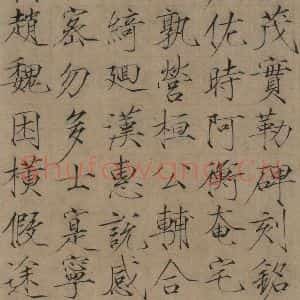 茂實勒碑刻銘
佐時阿衡奄宅
孰營桓公輔合
綺廻漢惠說感
密勿多士寔寧
趙魏困橫假途
shufawang.cn